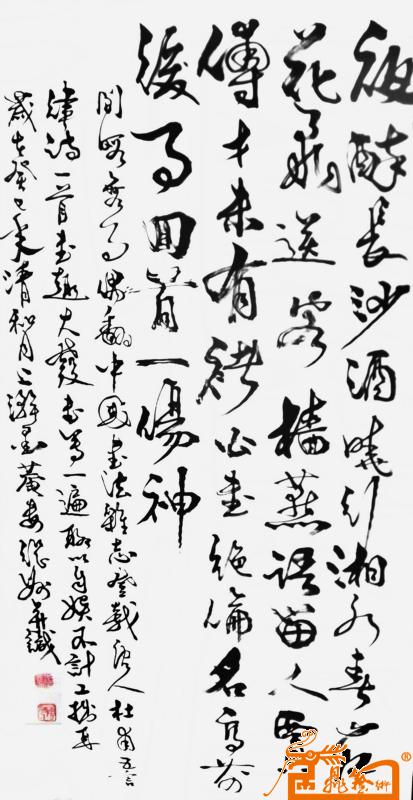 夜醉長沙酒曉行湘水春岸
花飛送客檣燕語留人賈
傅才未有褚公書絕倫名高前
後事回首一傷神
閒暇無事偶翻中國書法雜志登載唐人杜甫五言
律詩一首書趣大發書寫一遍聊以自娛不計工拙耳
歲在癸巳年清和月上澣墨菴